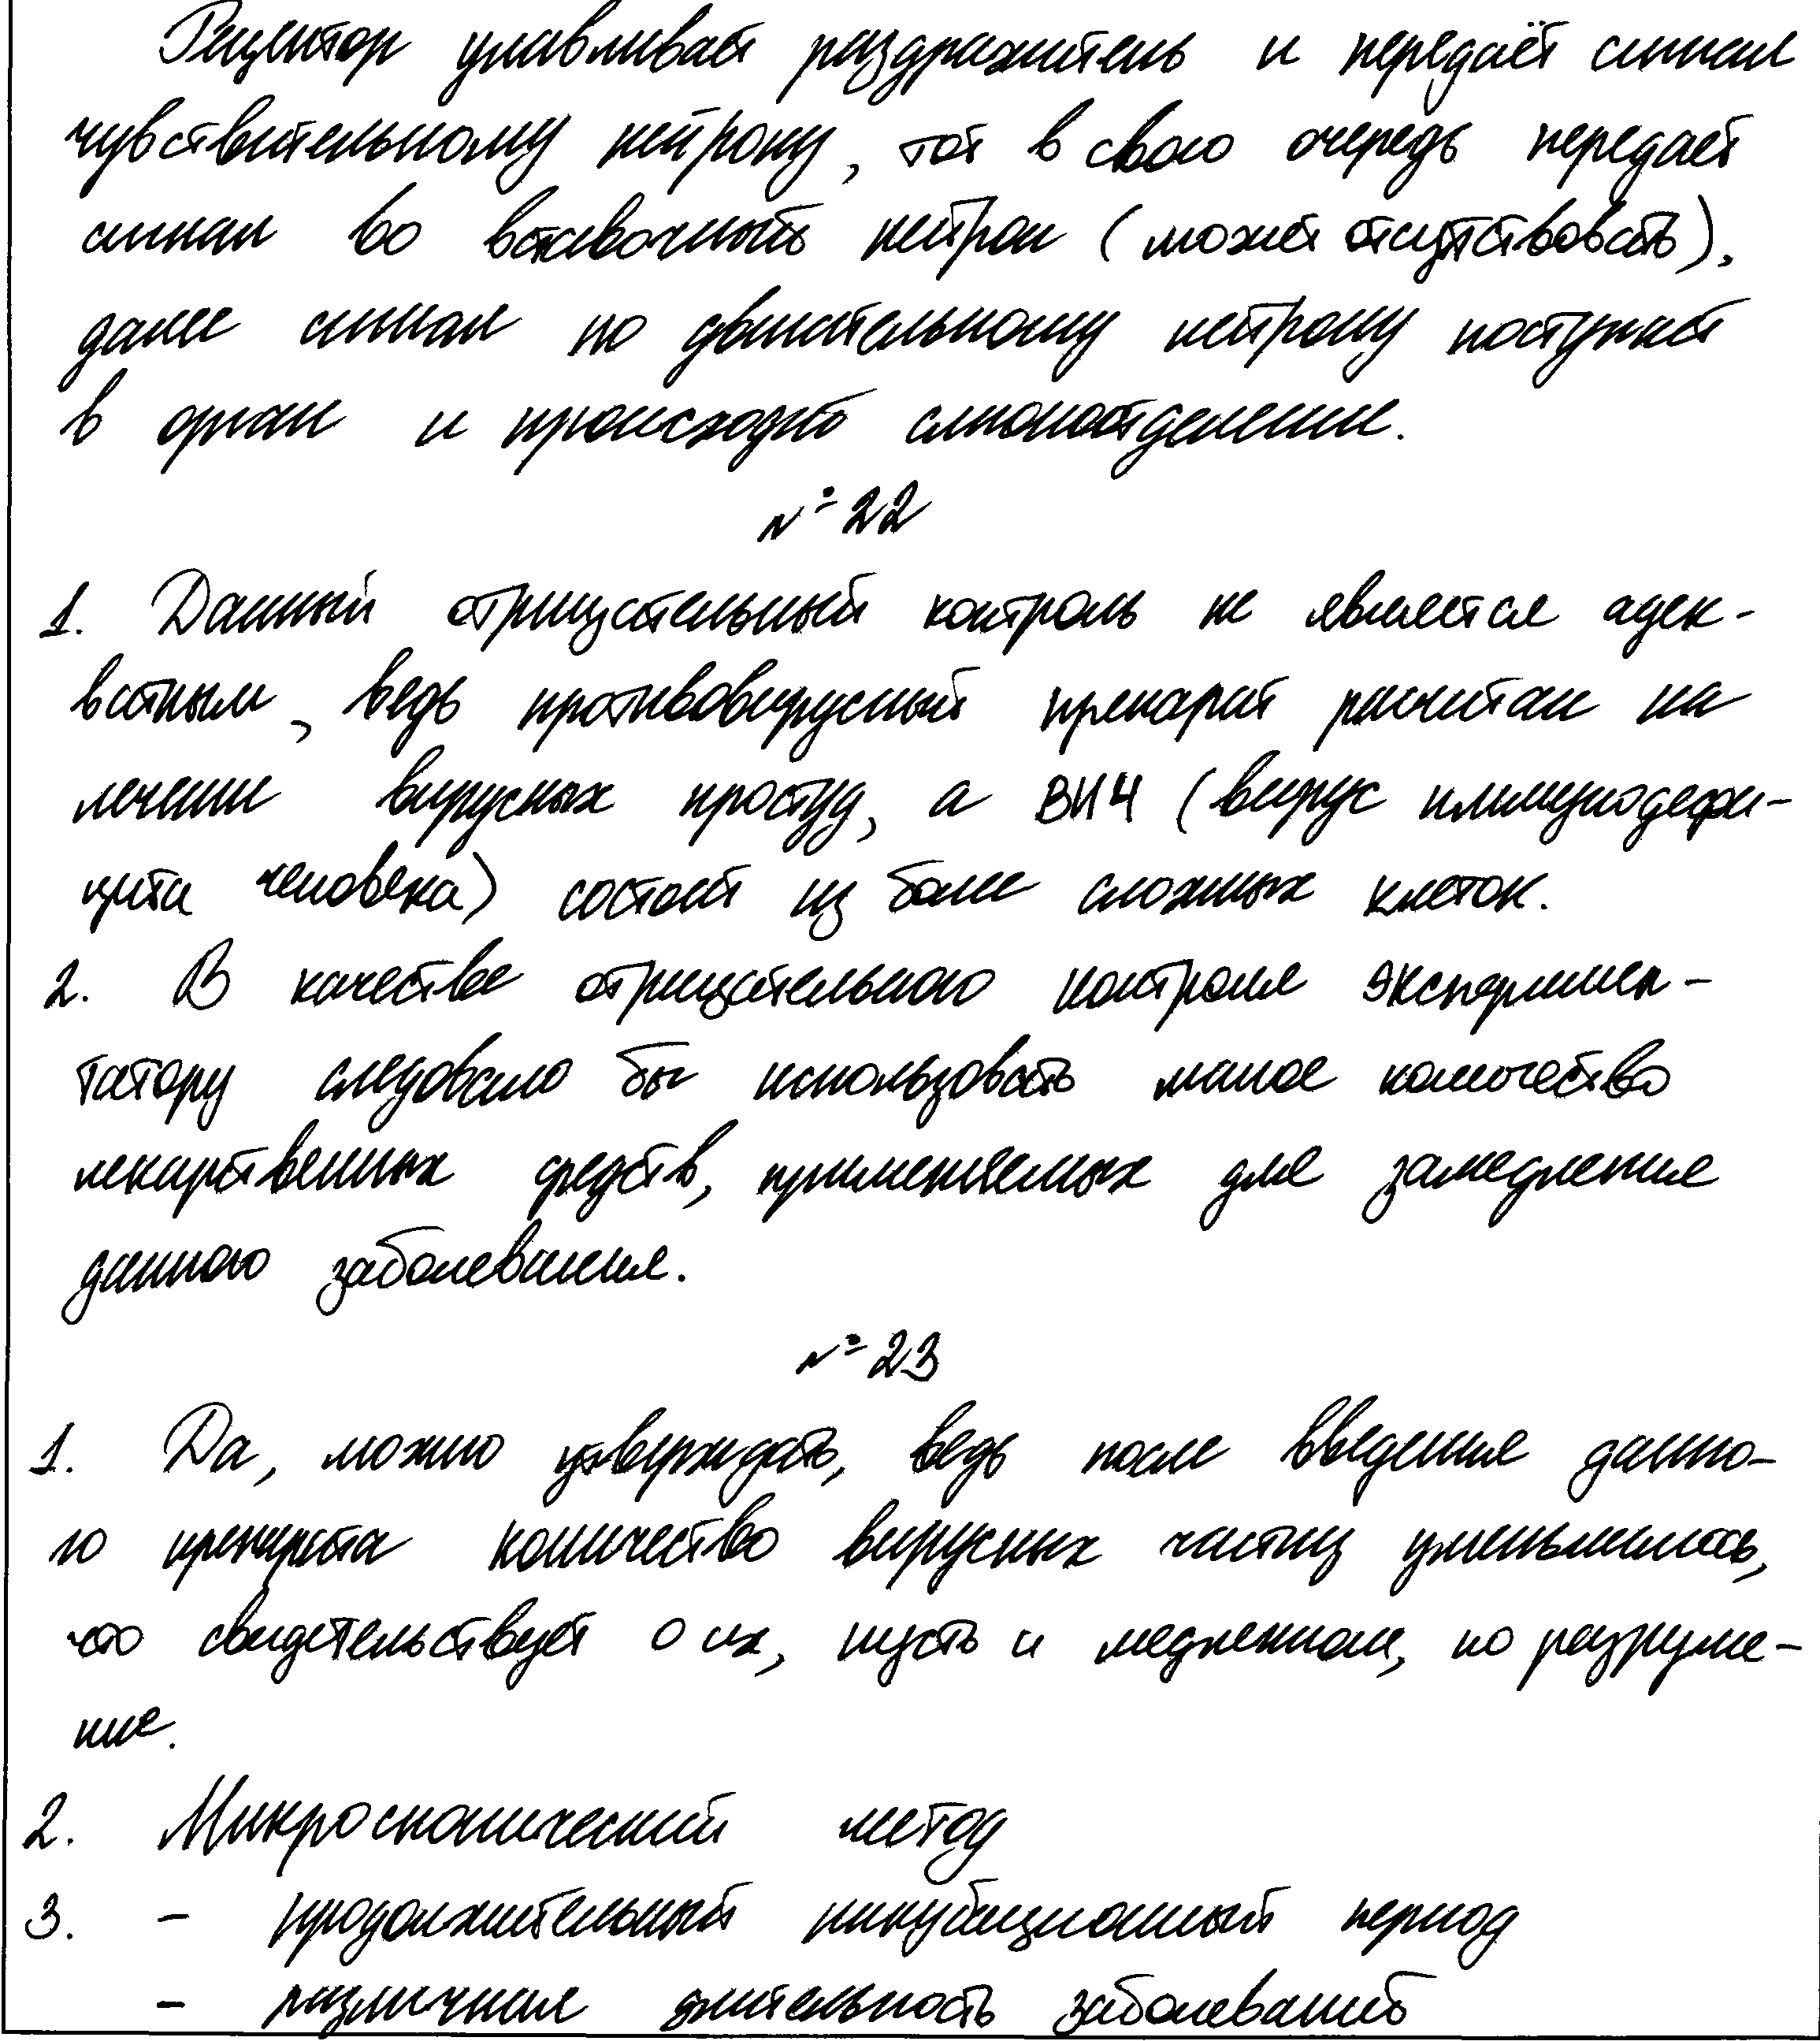 Рецептор улавливает раздражитель и передаёт сигнал
чувствительному нейрону, тот в свою очередь передает
сигнал во вставочный нейрон (может отсутствовать),
далее сигнал по двигательному нейрону поступает
в орган и происходит слюноотделение.
№ 22
1. Данный отрицательный контроль не является адек-
ватным, ведь противовирусный препарат расчитан на
лечении вирусных простуд, а ВИЧ (вирус иммунодефи-
цита человека) состоит из более сложных клеток.
2. В качестве отрицательного контроля эксперимен-
татору следовало бы использовать малое количество
лекарственных средств, применяемых для замедления
данного заболевания.
№ 23
1. Да, можно утверждать, ведь после введения данно-
го препарата количество вирусных частиц уменьшилось,
что свидетельствует о их, пусть и медленном, но разруше-
ние.
2. Микроскопический метод
3. - продолжительный инкубационный период
- различная длительность заболеваний